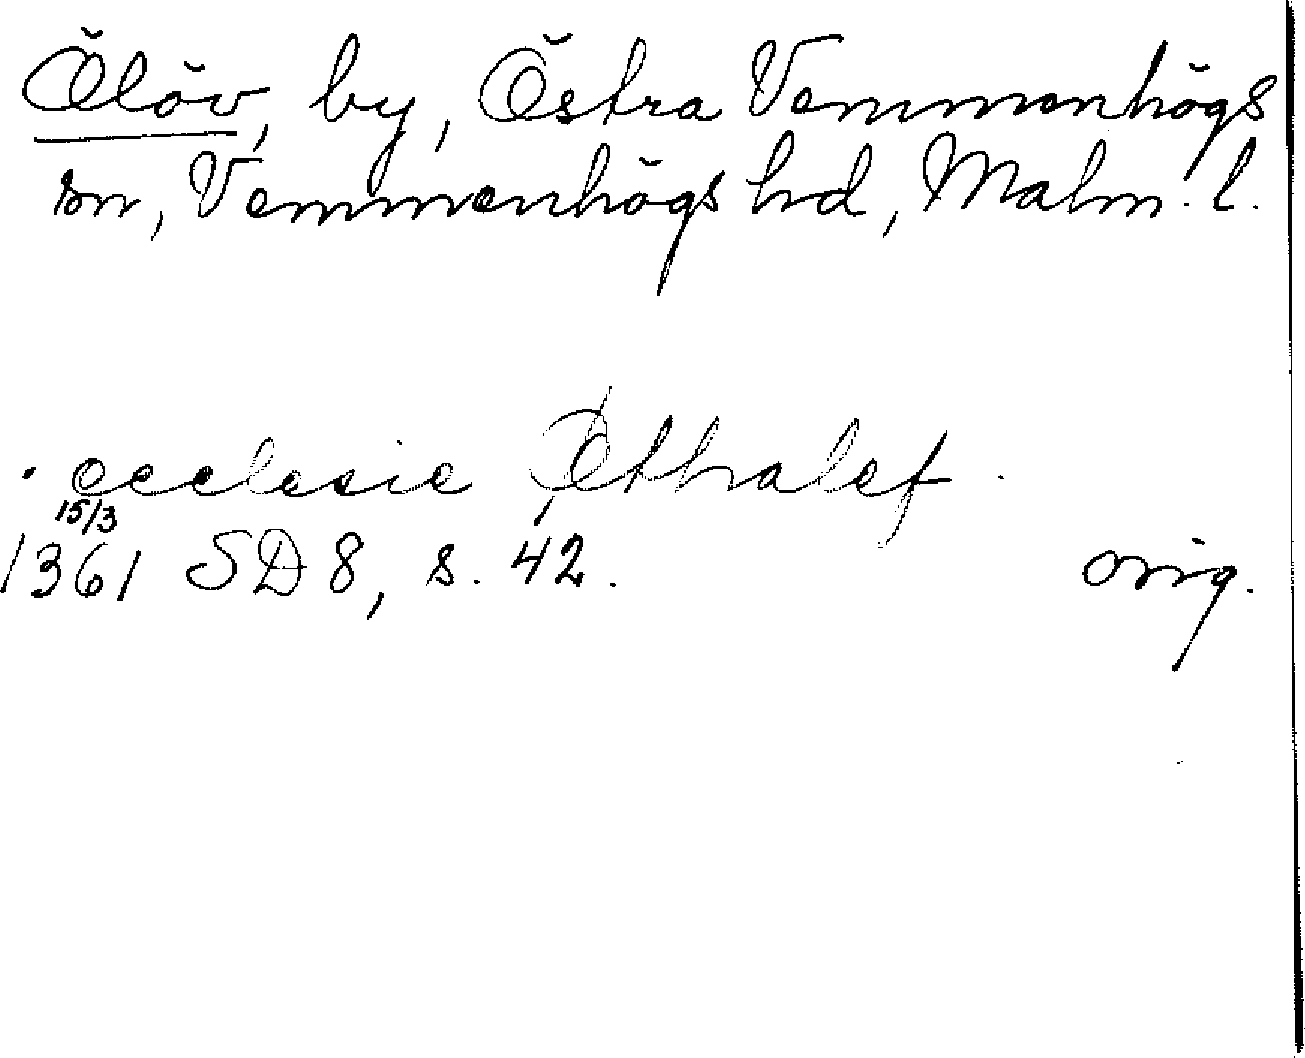 Ölöv, by, Östra Vemmenhögs
sn, Vemmenhögs hd, Malm. l.
. ecclesie Øthalef .
15/3
1361 SD 8, s. 42. orig.